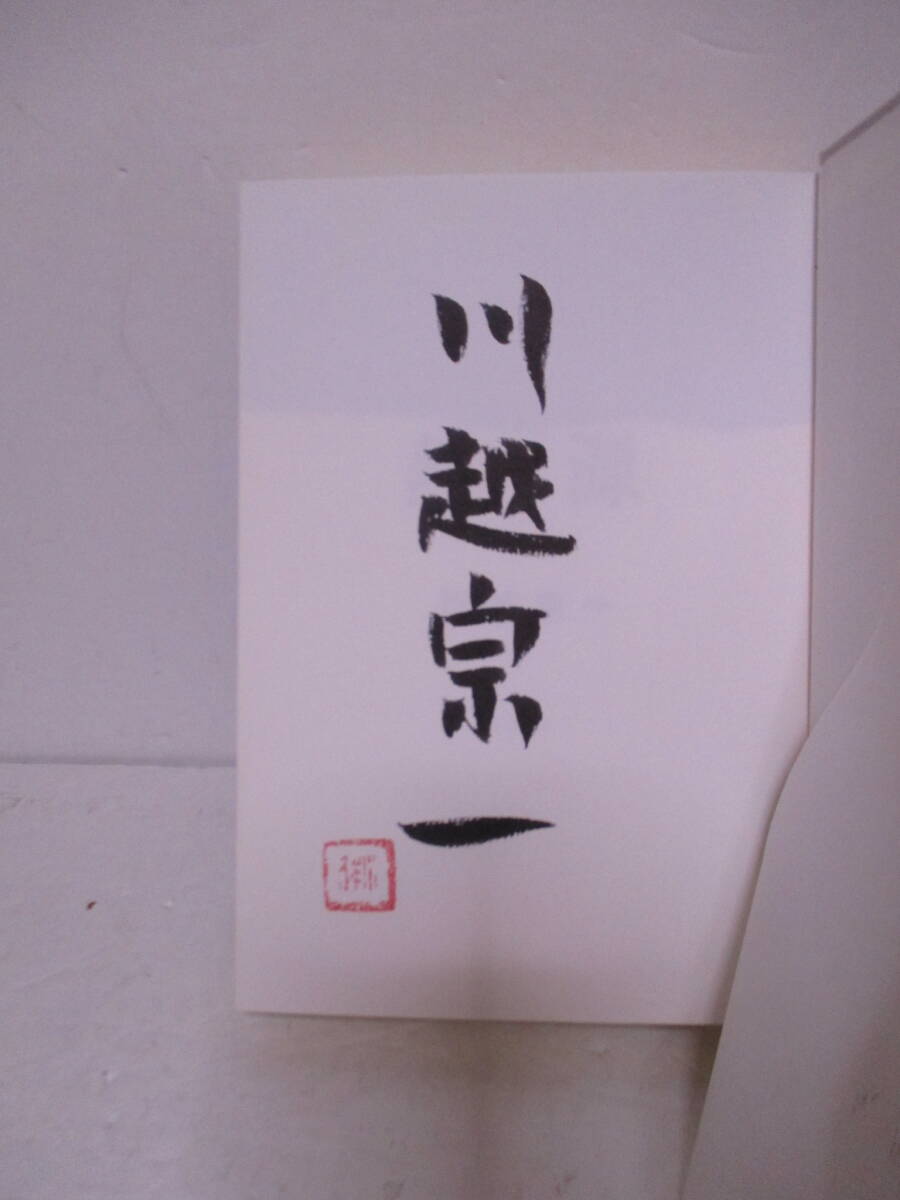 川越宗一